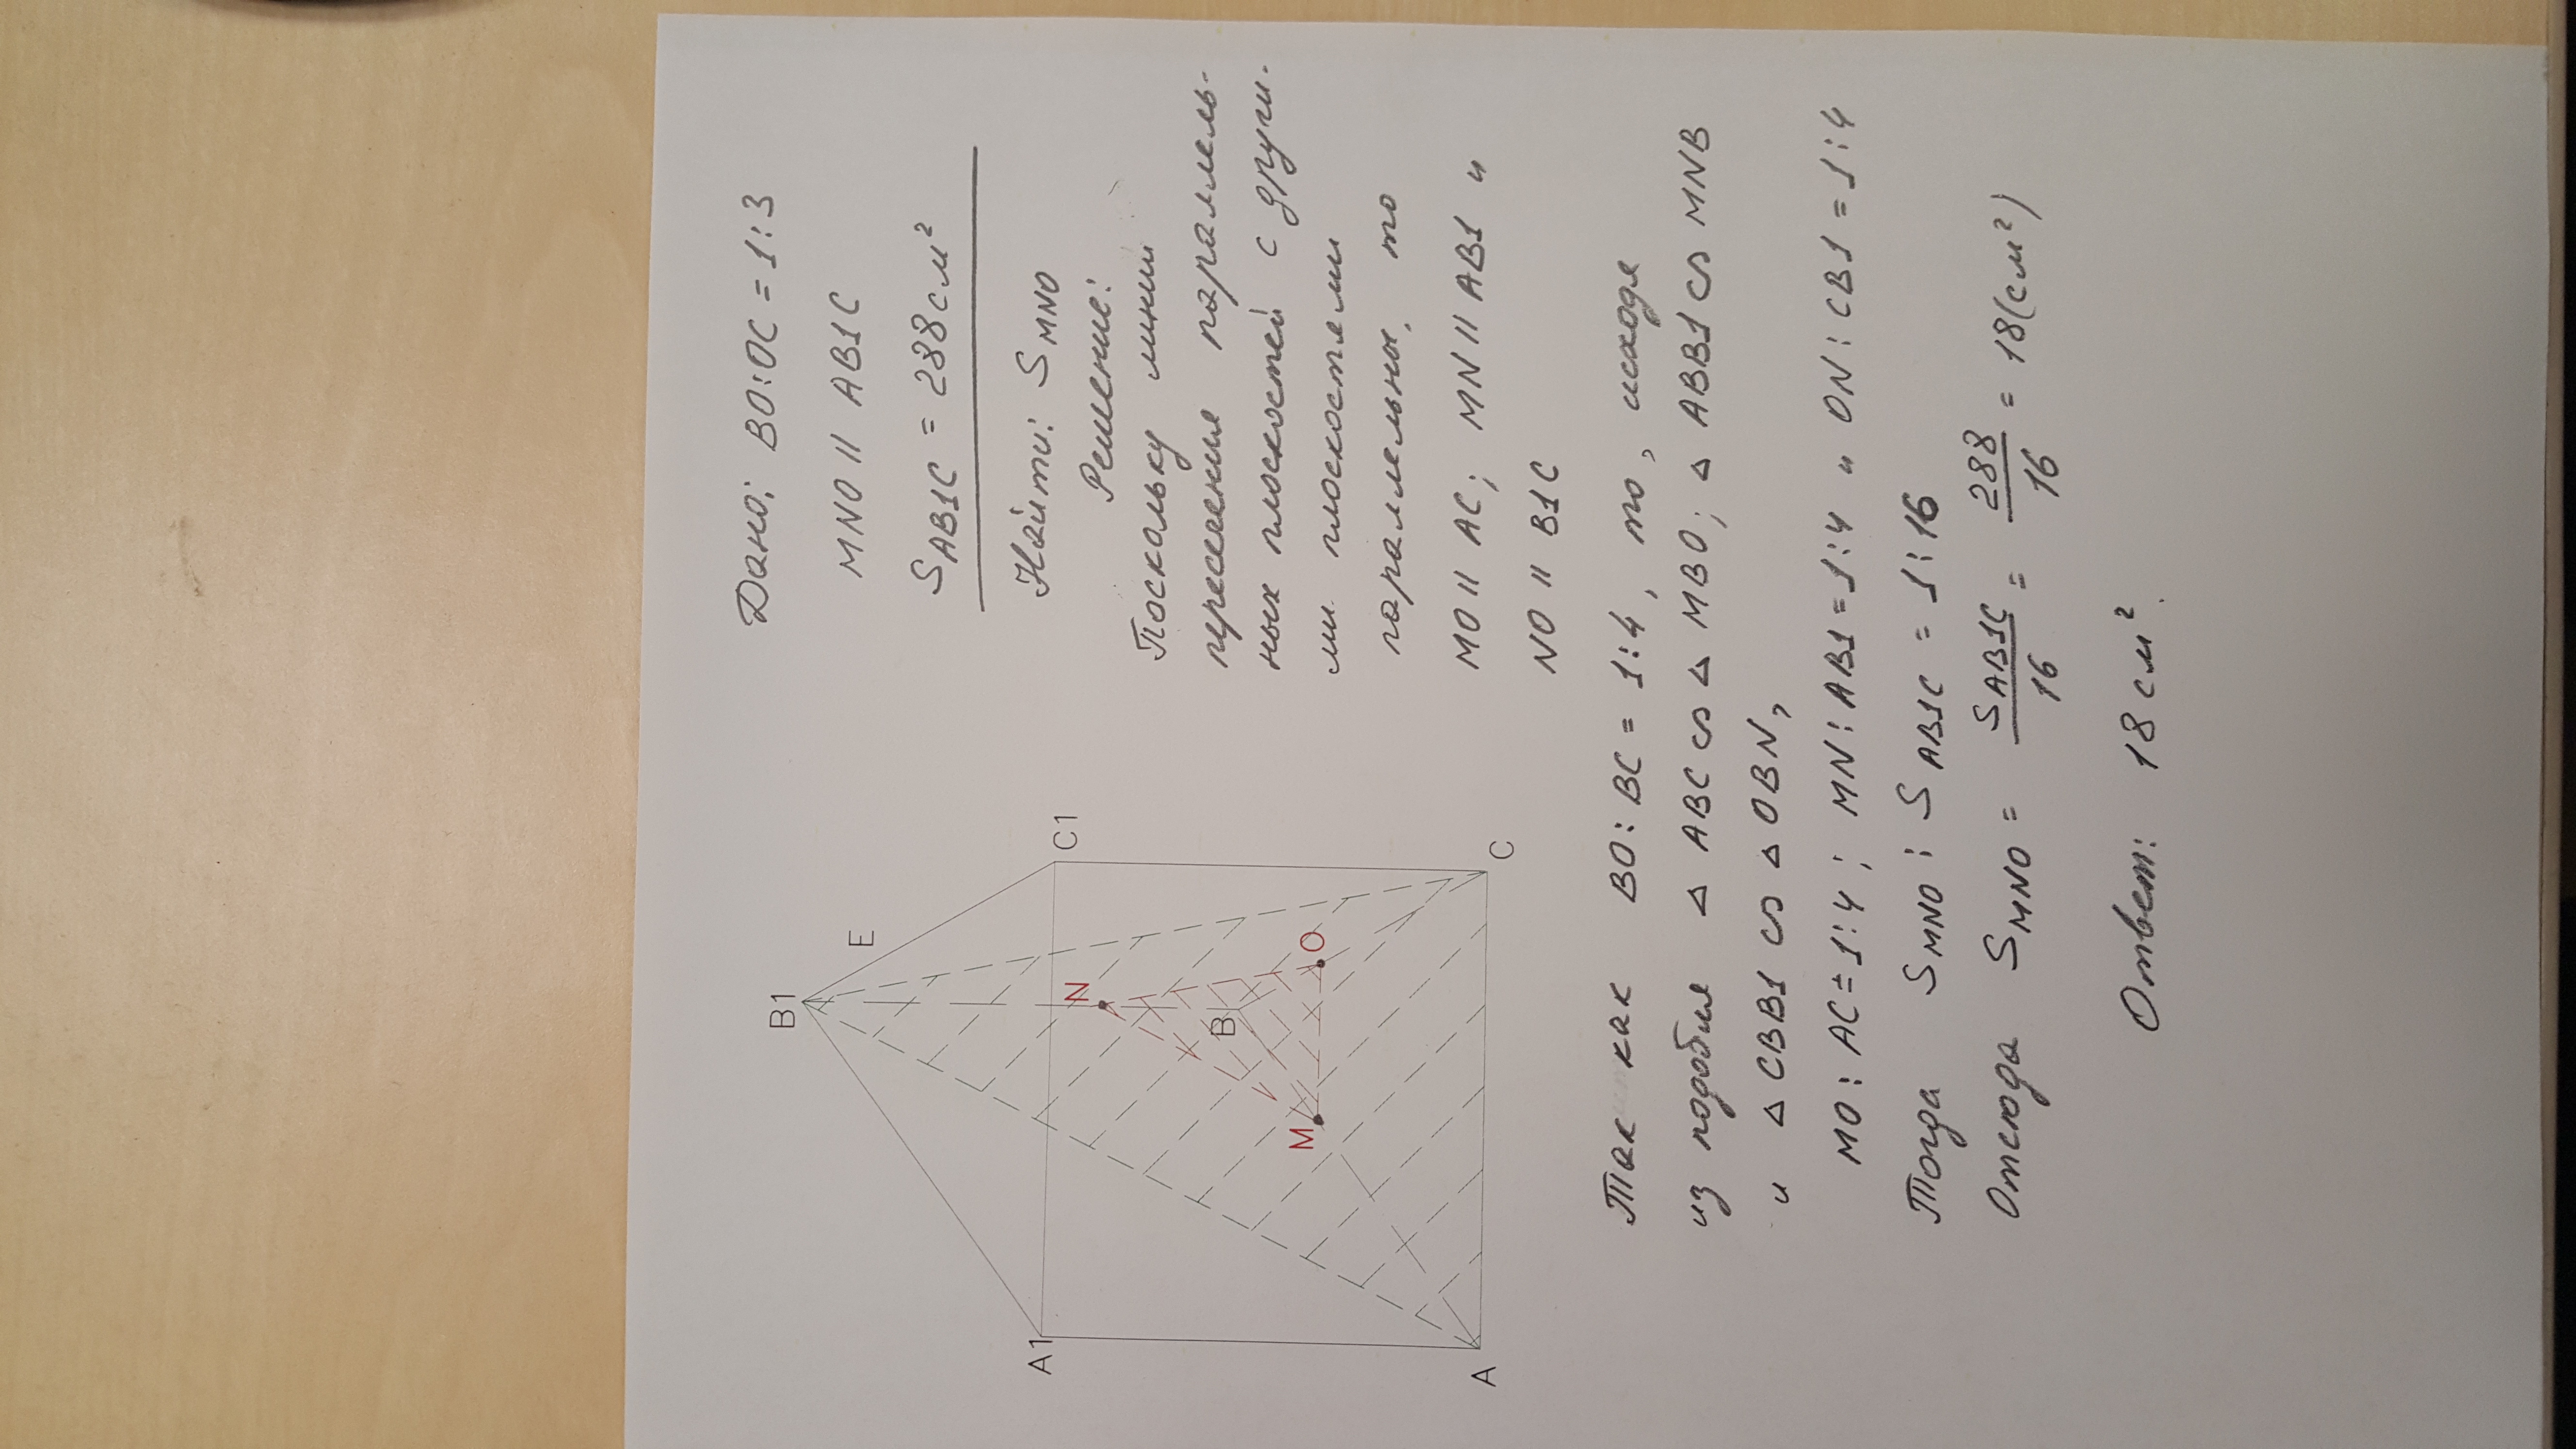 Дано: BO:OC = 1:3
MNO || AB1C
S AB1C = 288 см²
Найти: S MNO
Решение:
Поскольку линии
пересечения параллель-
ных плоскостей с други-
ми плоскостями
параллельны, то
MO || AC; MN || AB1 и
NO || B1C
B1
E
A1
C1
N
B
M
O
A
C
Так как BO:BC = 1:4, то, исходя
из подобия Δ ABC ∽ Δ MBO; Δ ABB1 ∽ MNB
и Δ CBB1 ∽ Δ OBN,
MO:AC = 1:4; MN:AB1 = 1:4 и ON:CB1 = 1:4
Тогда S MNO : S AB1C = 1:16
Отсюда S MNO = S AB1C / 16 = 288 / 16 = 18 (см²)
Ответ: 18 см².